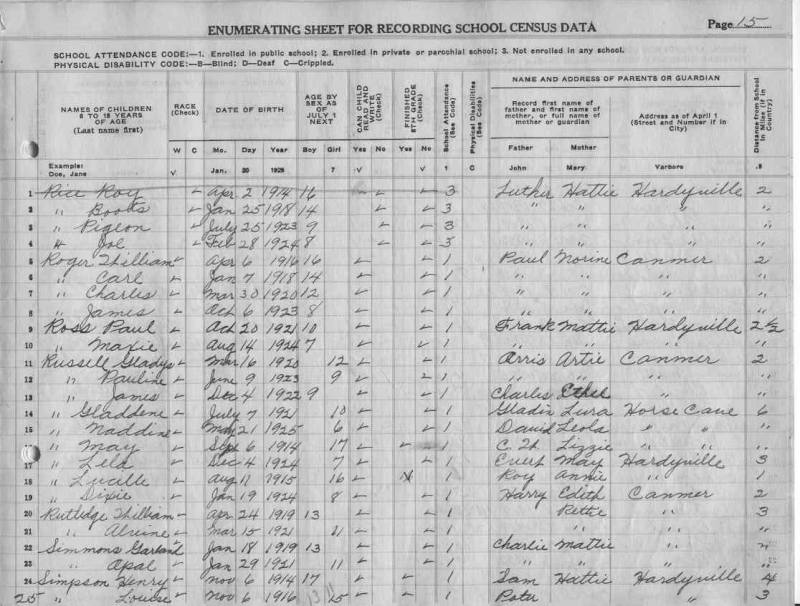 ENUMERATING SHEET FOR RECORDING SCHOOL CENSUS DATA
Page 15
SCHOOL ATTENDANCE CODE:—1. Enrolled in public school; 2. Enrolled in private or parochial school; 3. Not enrolled in any school.
PHYSICAL DISABILITY CODE:—B—Blind; D—Deaf C—Crippled.
NAMES OF CHILDREN 6 to 18 YEARS OF AGE (Last name first) RACE (Check) DATE OF BIRTH AGE BY SEX AS OF JULY 1 NEXT CAN CHILD READ AND WRITE (Check) FINISHED 8TH GRADE (Check) School Attendance (See Code) Physical Disabilities (See Code) NAME AND ADDRESS OF PARENTS OR GUARDIAN Distance from School in Miles (If in Country)
Record first name of father and first name of mother, or full name of mother or guardian Address as of April 1 (Street and Number if in City)
W C Mo. Day Year Boy Girl Yes No Yes No Father Mother
Example: Doe, Jane V Jan. 20 1925 7 V V 1 C John Mary Varbore .5
1 Rice Roy ✓ Apr 2 1914 16 ✓ ✓ ✓ 3 Luther Hattie Hardyville 2
2 " Boots ✓ Jan 25 1918 14 ✓ ✓ 3 " " " "
3 " Pigeon ✓ July 25 1923 9 ✓ ✓ 3 " " " "
4 " Joe ✓ Feb 28 1924 8 ✓ ✓ 3 " " " "
5 Roger ✓ Apr 6 1916 16 ✓ ✓ 1 Paul Canmer 2
6 " Carl ✓ Jan 7 1918 14 ✓ ✓ 1 " " " "
7 " Charles ✓ Mar 30 1920 12 ✓ ✓ 1 " " " "
8 " James ✓ Oct 6 1923 8 ✓ ✓ 1 " " " "
9 Ross Paul ✓ Oct 20 1921 10 ✓ ✓ 1 Frank Mattie Hardyville 2 1/2
10 " Maxie ✓ Aug 14 1924 7 ✓ ✓ 1 " " " "
11 Russell Gladys ✓ Mar 16 1920 12 ✓ ✓ 1 Arris Artie Canmer 2
12 " Pauline ✓ June 9 1923 9 ✓ ✓ 1 " " " "
13 " James ✓ Dec 4 1922 9 ✓ ✓ 1 Charles Ethel " "
14 " Gladdene ✓ July 7 1921 10 ✓ ✓ 1 Lura Horse Cave 6
15 " Naddine ✓ May 21 1925 6 ✓ ✓ 1 David Leola " "
" May ✓ Sept 6 1914 17 ✓ ✓ 1 Lizzie " "
17 " ✓ Dec 4 1924 7 ✓ ✓ 1 May Hardyville 3
18 " Lucille ✓ Aug 11 1915 16 ✓ 1 Roy Annie " 1
19 " Dixie ✓ Jan 19 1924 8 ✓ ✓ 1 Harry Edith Canmer 2
20 Rutledge ✓ Apr 24 1919 13 ✓ ✓ 1 " 3
21 " ✓ Mar 15 1921 11 ✓ ✓ 1 " " "
22 Simmons Garland Jan 18 1919 13 ✓ ✓ 1 Charlie Mattie " "
23 " Opal ✓ Jan 29 1921 11 ✓ ✓ 1 " " " "
24 Simpson Henry ✓ Nov 6 1914 17 ✓ ✓ 1 Sam Hattie Hardyville 4
25 " Louise ✓ Nov 6 1916 15 ✓ ✓ 1 " 3